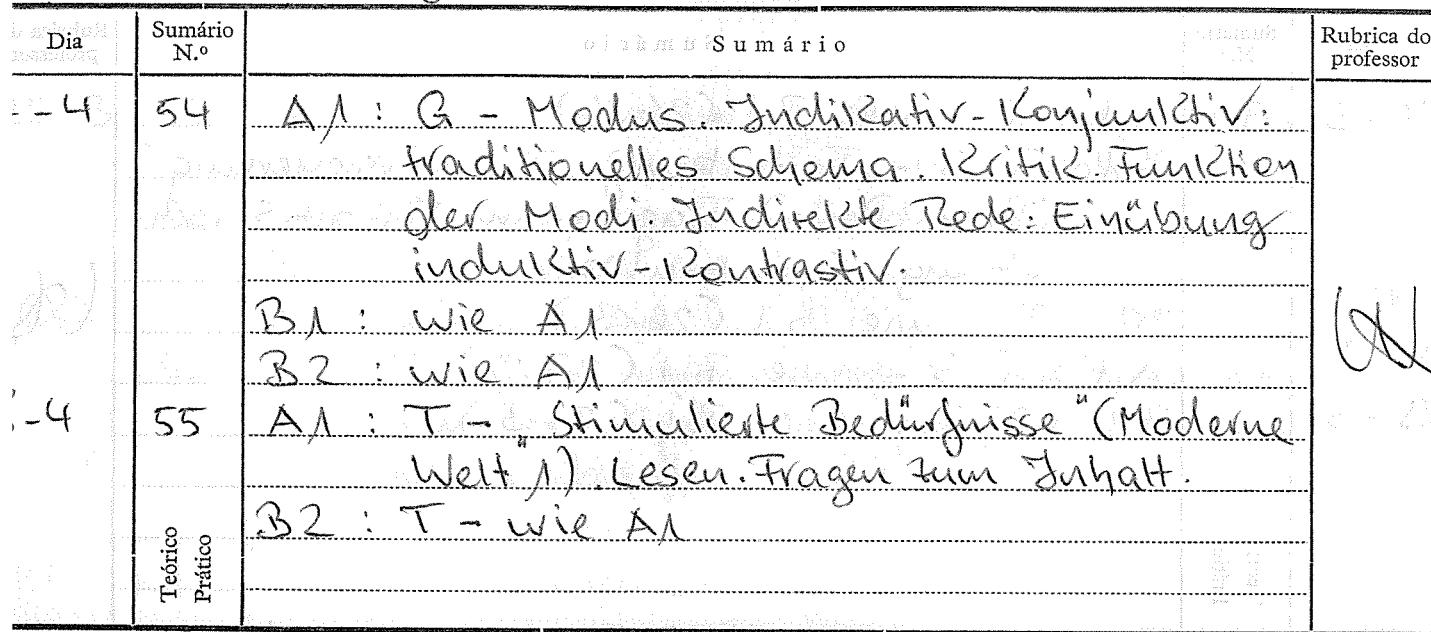 Dia Sumário N.º Sumário Rubrica do professor
-4 54 A1 : G - Modus. Indikativ-Konjunktiv:
traditionelles Schema. Kritik. Funktion
der Modi. Indirekte Rede: Einübung
induktiv-kontrastiv.
B1 : wie A1
B2 : wie A1
-4 55 A1 : T - "Stimulierte Bedürfnisse" (Moderne
Welt" 1). Lesen. Fragen zum Inhalt.
B2 : T - wie A1
Teórico
Prático